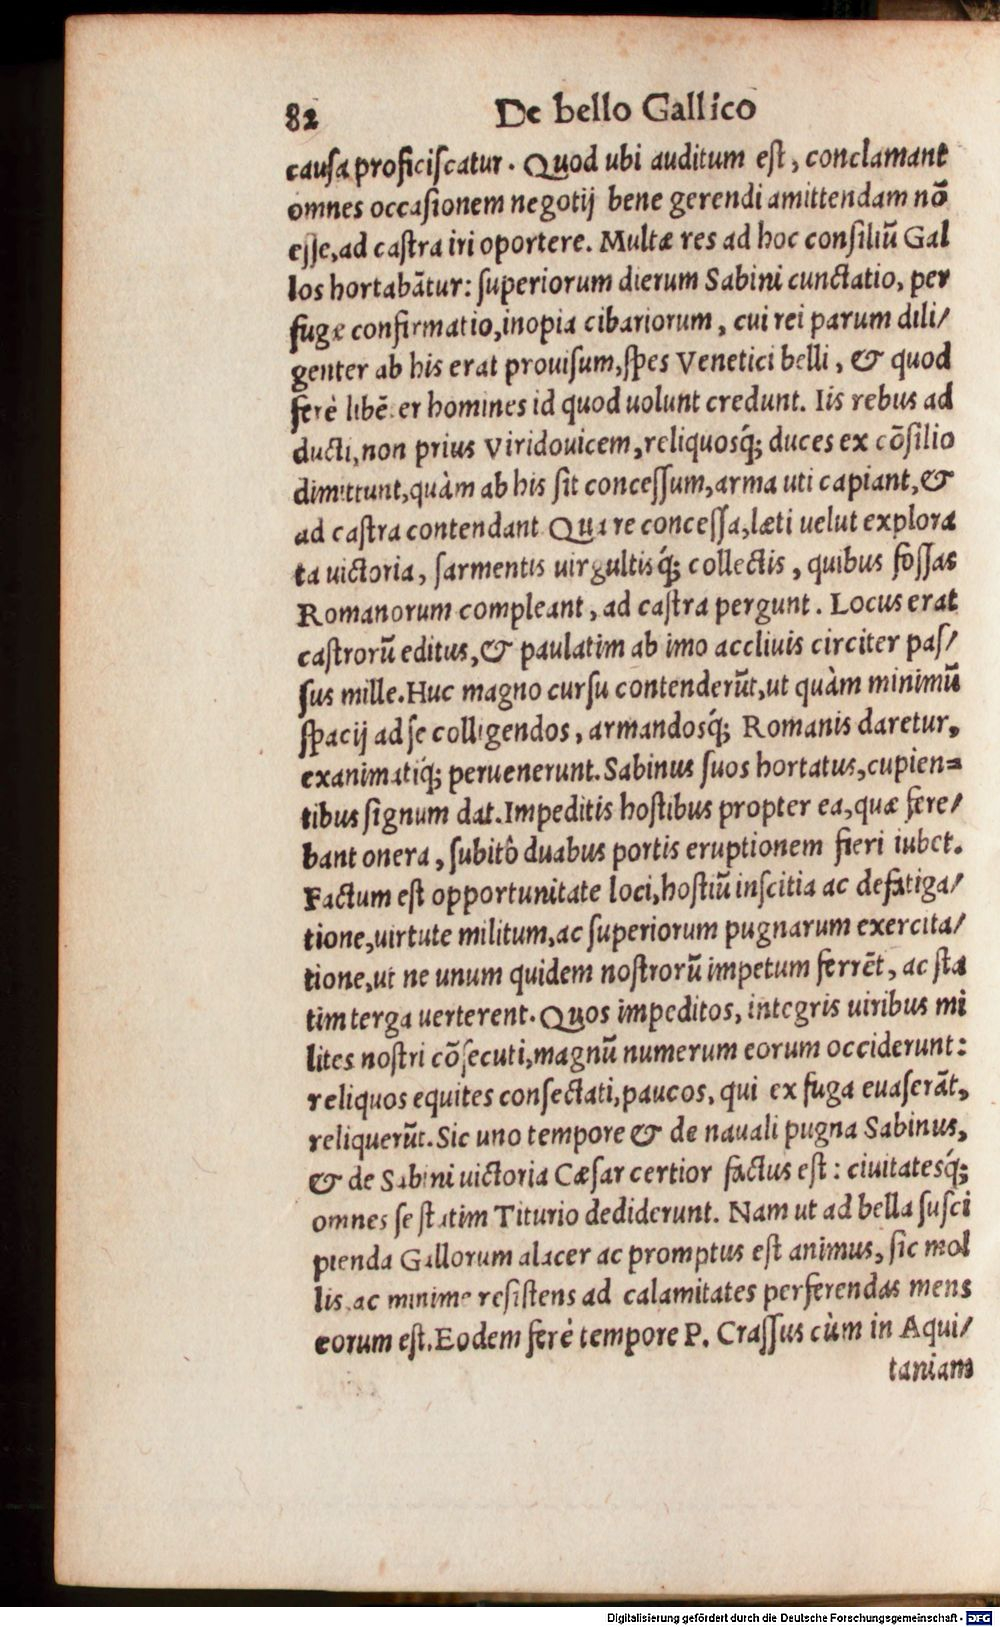 82 De bello Gallico
cauſa proficiſcatur. Quod ubi auditum eſt, conclamant
omnes occaſionem negotij bene gerendi amittendam nō
eſſe, ad caſtra iri oportere. Multæ res ad hoc conſiliū Gal
los hortabātur: ſuperiorum dierum Sabini cunctatio, per
fugæ confirmatio, inopia cibariorum, cui rei parum dili/
genter ab his erat prouiſum, ſpes Venetici belli, & quod
ferè libēter homines id quod uolunt credunt. Iis rebus ad
ducti, non prius Viridouicem, reliquosq́; duces ex cōſilio
dimittunt, quàm ab his ſit conceſſum, arma uti capiant, &
ad caſtra contendant. Qua re conceſſa, læti uelut explora
ta uictoria, ſarmentis uirgultisq́; collectis, quibus foſſas
Romanorum compleant, ad caſtra pergunt. Locus erat
caſtrorū editus, & paulatim ab imo accliuis circiter paſ/
ſus mille. Huc magno curſu contenderūt, ut quàm minimū
ſpacij ad ſe colligendos, armandosq́; Romanis daretur,
exanimatiq́; peruenerunt. Sabinus ſuos hortatus, cupien=
tibus ſignum dat. Impeditis hoſtibus propter ea, quæ fere/
bant onera, ſubitò duabus portis eruptionem fieri iubet.
Factum eſt opportunitate loci, hoſtiū inſcitia ac defatiga/
tione, uirtute militum, ac ſuperiorum pugnarum exercita/
tione, ut ne unum quidem noſtrorū impetum ferrēt, ac ſta
tim terga uerterent. Quos impeditos, integris uiribus mi
lites noſtri cōſecuti, magnū numerum eorum occiderunt:
reliquos equites conſectati, paucos, qui ex fuga euaſerāt,
reliquerūt. Sic uno tempore & de nauali pugna Sabinus,
& de Sabini uictoria Cæſar certior factus eſt: ciuitatesq́;
omnes ſe ſtatim Titurio dediderunt. Nam ut ad bella ſuſci
pienda Gallorum alacer ac promptus eſt animus, ſic mol
lis, ac minime reſiſtens ad calamitates perferendas mens
eorum eſt. Eodem ferè tempore P. Craſſus cùm in Aqui/
taniam
Digitalisierung gefördert durch die Deutsche Forschungsgemeinschaft - DFG